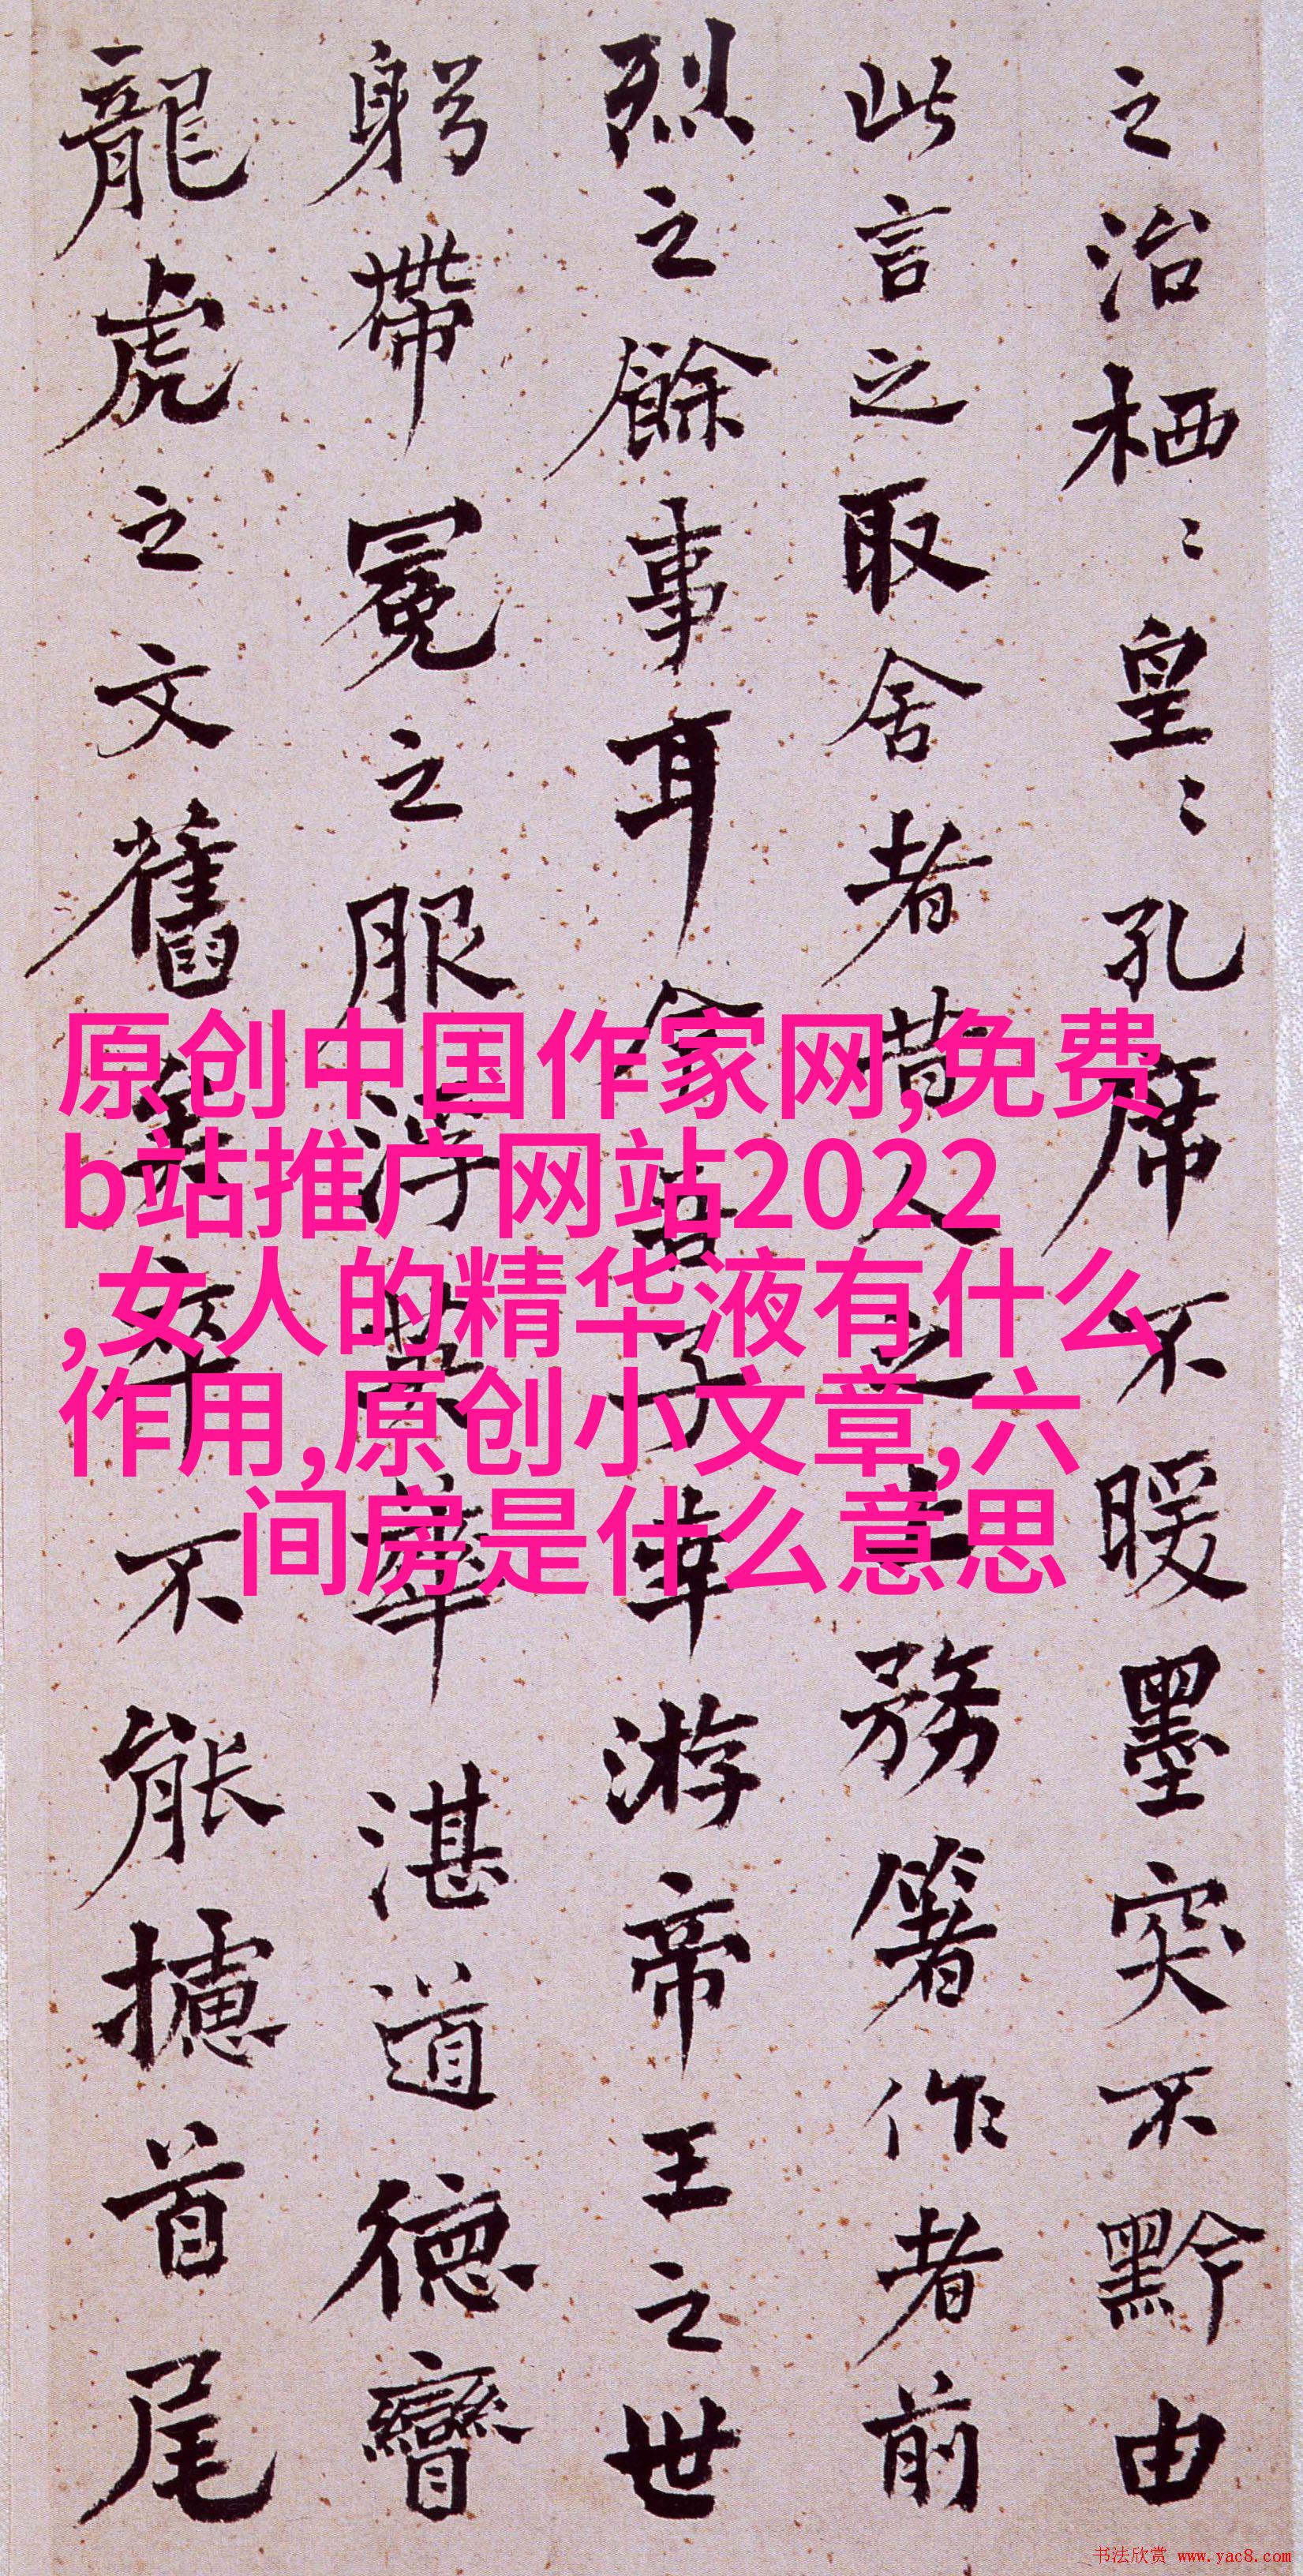 之治栖〻皇〻孔席不暖墨突不黔由
此言之取舍者昔人之上務箸作者前
烈之餘事耳今吾子幸游帝王之世
躬帶冕之服浮英華湛道德矕
龍虎之文舊矣卒不能攄首尾
原创中国作家网,免费
b站推广网站2022
,女人的精华液有什么
作用,原创小文章,六
间房是什么意思
书法欣赏 www.yac8.com